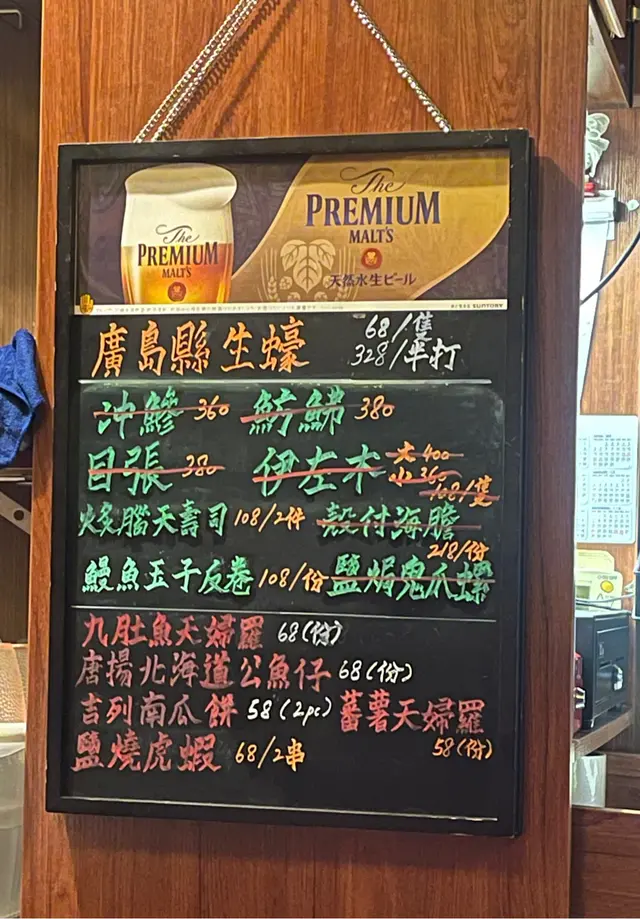 The
PREMIUM
MALT'S
The
PREMIUM
MALT'S
天然水生ビール
SUNTORY
廣島縣生蠔 68/隻
328/半打
沖鰺 360 魴鮄 380
目張 380 伊左木 大 400
小 360
炙腦天壽司 108/2件 殼付海膽 108/隻
鰻魚玉子反卷 108/份 鹽焗鬼瓜螺 218/份
九肚魚天婦羅 68(份)
唐揚北海道公魚仔 68(份)
吉列南瓜餅 58(2pc) 蕃薯天婦羅
鹽燒虎蝦 68/2串 58(份)